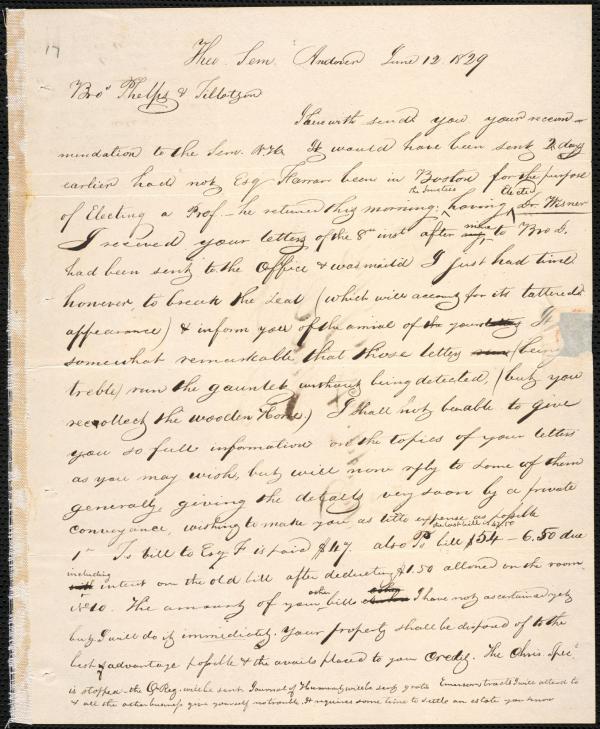 17
Theo. Sem. Andover June 12 1829
Bros Phelps & Tillotson
I herewith send you your recom-
mendation to the Sem. N.H. It would have been sent 2 days
earlier had not Esq Farrar been in Boston for the purpose
the trustees elected
of Electing a Prof – he returned this morning; having Dr. Wisner
I received your letters of the 8th inst after mine to Bro S.
had been sent to the Office & was mail'd I just had time
however, to break the seal (which will account for its tattered
appearance) & inform you of the arrival of the your
somewhat remarkable that those letters (being
treble) run the gauntlet without being detected, (but you
recollect the wooden Horse.) I shall not be able to give
you so full information on the topics of your letters
as you may wish, but will now reply to some of them
generally, giving the details very soon by a private
conveyance wishing to make you as little expense as possible
1st T's bill to Esq F is paid $47. also P's bill $54 – 6.50 due
including
interest on the old bill after deducting $1.50 allowed on the room
No 10. The amount of your other bills I have not ascertained yet
but I will do it immediately. Your property shall be disposed of to the
best advantage possible & the avails placed to your Credit. The Chris. Spec.
is stopped – the Q. Reg. will be sent Journal of Humanity will be sent gratis Emerson's tracts I will attend to
& all the other business give yourself no trouble, It requires some time to settle an estate you know